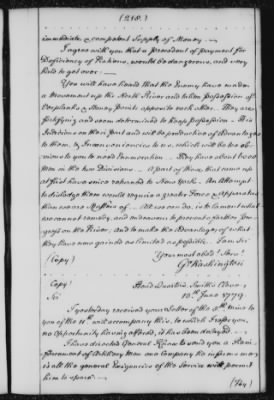 (218.)
immediate & competent Supply of Money. —
I agree with you that a precedent of payment for
Deficiency of Rations, would be dangerous, and very
hard to get over. —
You will have heard that the Enemy have made
a Movement up the North River and taken possession of
Verplanks & Stoney points opposite each other. They are
fortifying and seem determined to keep possession. This
is on their part and will be productive of advantages
to them, & Inconveniencies to us, which will be too ob-
vious to you to need Enumeration. They have about
men in the two Divisions. A part of those, that came up
at first have since returned to New York. An attempt
to dislodge them would require a greater Force & apparatus
than we are Masters of. All we can do, is to lament what
we cannot remedy, and endeavour to prevent a farther Pro-
gress on the River, and to make the Advantages of what
they have now gained as limited as possible. I am Sir
Your most obed.t Serv.t
(Copy)
G.o Washington
Copy)
Head Quarters Smith's Clove
10.th June 1779.
Sir
I yesterday received your Letter of the
you of the 11.th will accompany this, to which I refer you,
no Opportunity having offered, it has been delayed. —
I have directed General Knox to send you a
of Artillery Men one Company he informs me
is all the general Exigencies of the Service will permit
him to spare. —
(The)